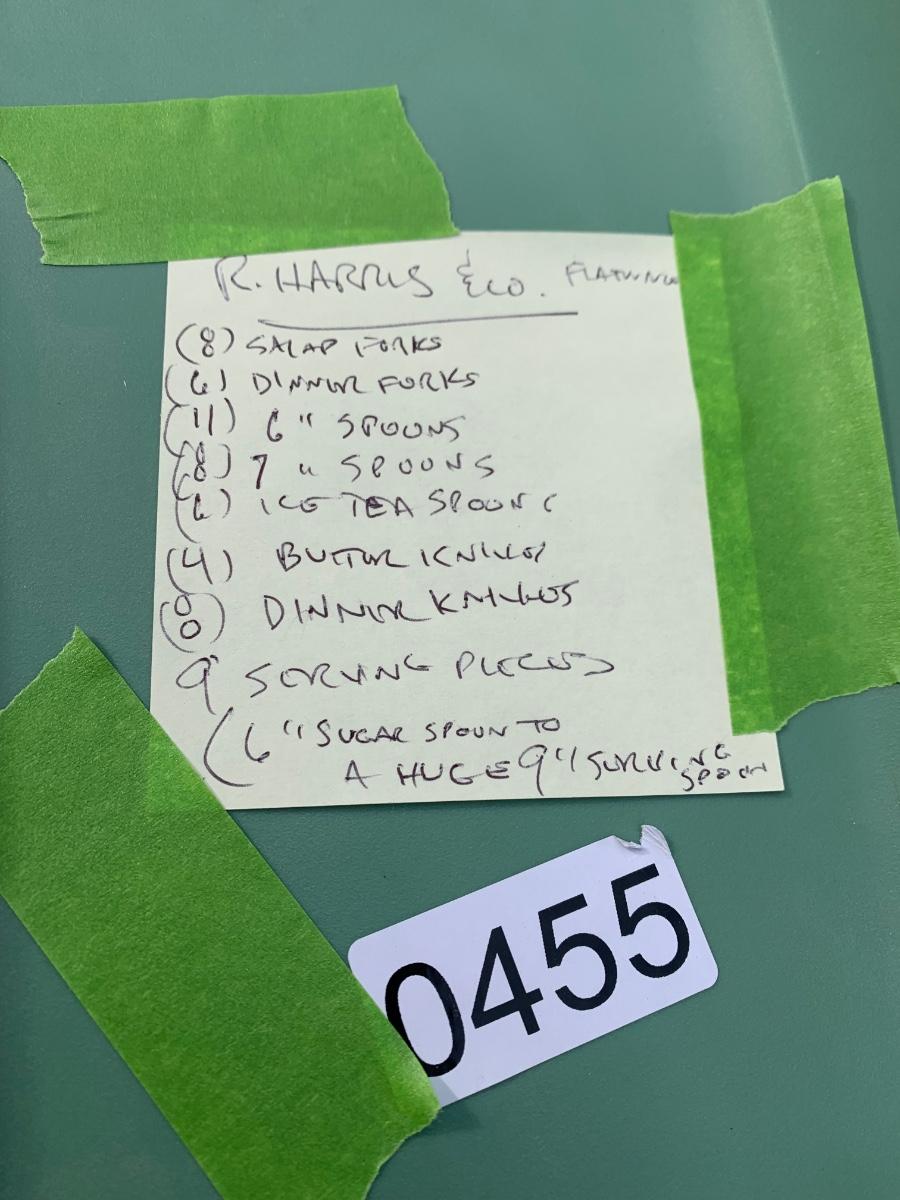 R. HARRIS & CO. FLATWARE
(8) SALAD FORKS
(6) DINNER FORKS
(11) 6" SPOONS
(8) 7" SPOONS
(6) ICE TEA SPOONS
(4) BUTTER KNIVES
(8) DINNER KNIVES
9 SERVING PIECES
(6" SUGAR SPOON TO
A HUGE 9" SERVING
SPOON
0455